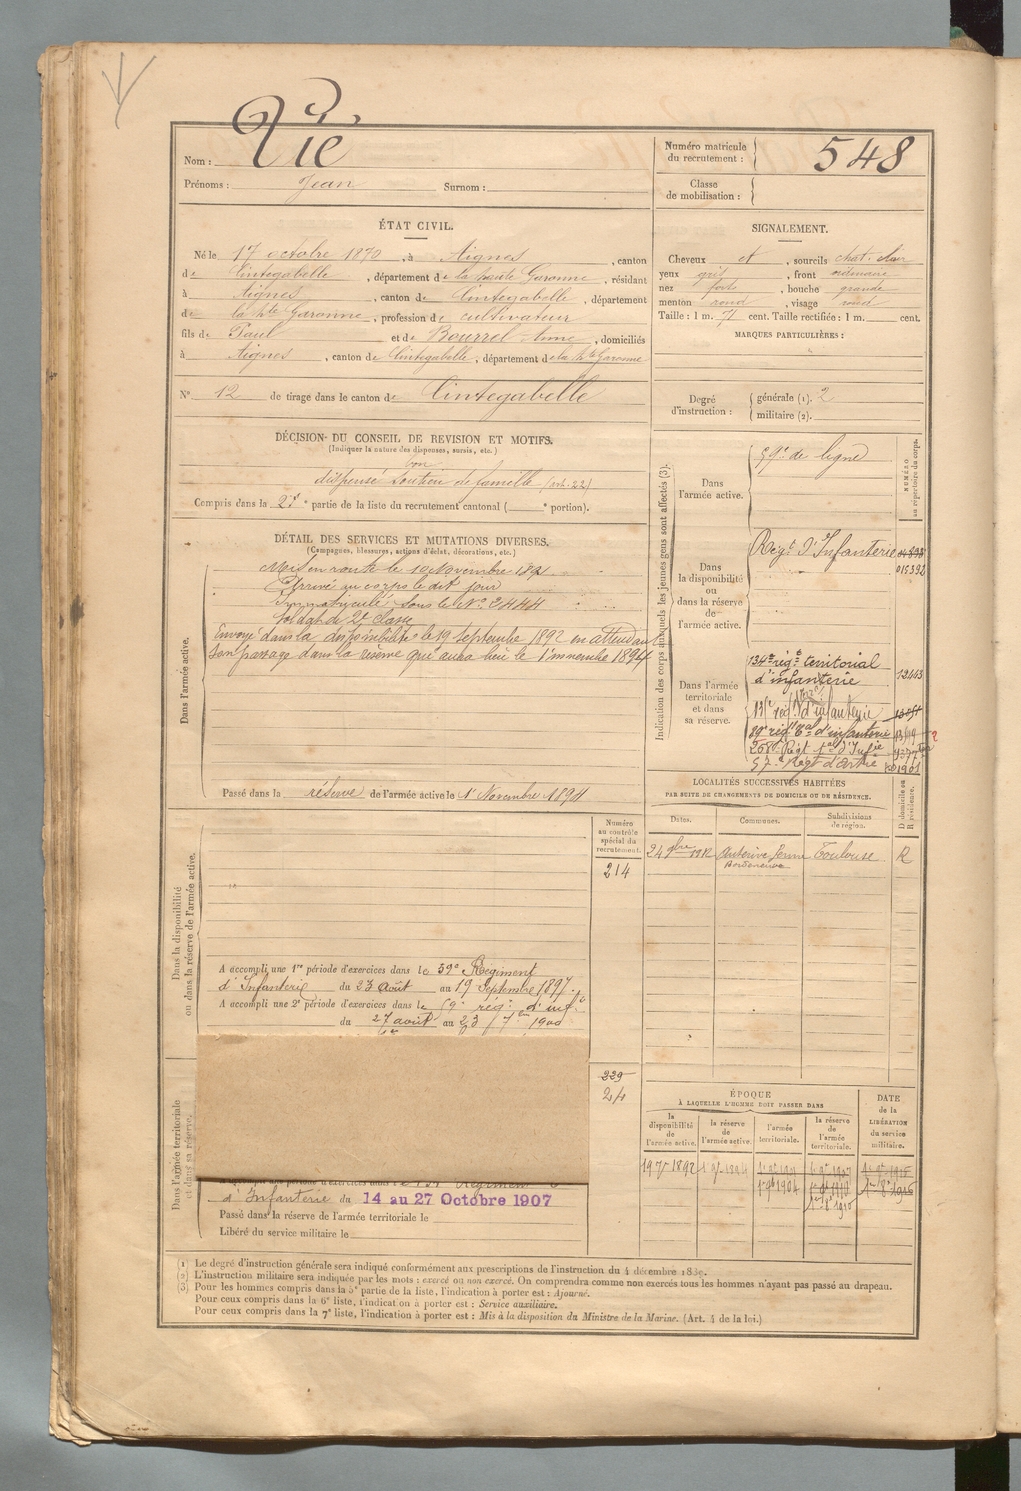 Nom : Vié
Prénoms : Jean Surnom :
Numéro matricule du recrutement : 548
Classe de mobilisation :
ÉTAT CIVIL.
Né le 17 octobre 1870, à Aignes, canton
de Cintegabelle, département de la haute Garonne, résidant
à Aignes, canton de Cintegabelle, département
de la hte Garonne, profession de cultivateur
fils de Paul et de Bourrel Anne, domiciliés
à Aignes, canton de Cintegabelle, département de la hte Garonne
N° 12 de tirage dans le canton de Cintegabelle
SIGNALEMENT.
Cheveux et, sourcils chat. clair
yeux gris, front ordinaire
nez fort, bouche grande
menton rond, visage rond
Taille : 1 m. 71 cent. Taille rectifiée : 1 m. cent.
MARQUES PARTICULIÈRES :
Degré d'instruction : générale (1). 2
militaire (2).
DÉCISION DU CONSEIL DE REVISION ET MOTIFS.
(Indiquer la nature des dispenses, sursis, etc.)
bon
dispensé soutien de famille (art. 22)
Compris dans la 2e partie de la liste du recrutement cantonal ( e portion).
DÉTAIL DES SERVICES ET MUTATIONS DIVERSES.
(Campagnes, blessures, actions d'éclat, décorations, etc.)
Dans l'armée active.
Mis en route le 10 Novembre 1891
Arrivé au corps le dit jour
Immatriculé sous le N° 2444
Soldat de 2e classe
Envoyé dans la disponibilité le 19 Septembre 1892 en attendant
son passage dans la réserve qui aura lieu le 1er novembre 1894
Passé dans la réserve de l'armée active le 1er Novembre 1894
Indication des corps auxquels les jeunes gens sont affectés (3).
NUMÉRO au répertoire du corps.
Dans l'armée active.
59e de ligne
Dans la disponibilité ou dans la réserve de l'armée active.
Régt d'Infanterie
015392
Dans l'armée territoriale et dans sa réserve.
134e régt territorial d'infanterie 12443
régt d'infanterie
régt tal d'infanterie
Régt tal d'Infie
57e Régt d'Artie
LOCALITÉS SUCCESSIVES HABITÉES
PAR SUITE DE CHANGEMENTS DE DOMICILE OU DE RÉSIDENCE.
Dates. Communes. Subdivisions de région. D domicile ou R résidence.
Auterive Toulouse R
Bordeneuve
Numéro au contrôle spécial du recrutement.
214
Dans la disponibilité ou dans la réserve de l'armée active.
A accompli une 1re période d'exercices dans le 59e Régiment
d'Infanterie du 23 août au 19 Septembre 1897
A accompli une 2e période d'exercices dans le 59e régt d'inf.
du 27 août au 23 7bre 1900
Dans l'armée territoriale et dans sa réserve.
239
24
Régiment
d'Infanterie du 14 au 27 Octobre 1907
Passé dans la réserve de l'armée territoriale le
Libéré du service militaire le
ÉPOQUE
À LAQUELLE L'HOMME DOIT PASSER DANS
la disponibilité de l'armée active. la réserve de l'armée active. l'armée territoriale. la réserve de l'armée territoriale. DATE de la LIBÉRATION du service militaire.
(1) Le degré d'instruction générale sera indiqué conformément aux prescriptions de l'instruction du 4 décembre 1889.
(2) L'instruction militaire sera indiquée par les mots : exercé ou non exercé. On comprendra comme non exercés tous les hommes n'ayant pas passé au drapeau.
(3) Pour les hommes compris dans la 5e partie de la liste, l'indication à porter est : Ajourné.
Pour ceux compris dans la 6e liste, l'indication à porter est : Service auxiliaire.
Pour ceux compris dans la 7e liste, l'indication à porter est : Mis à la disposition du Ministre de la Marine. (Art. 4 de la loi.)